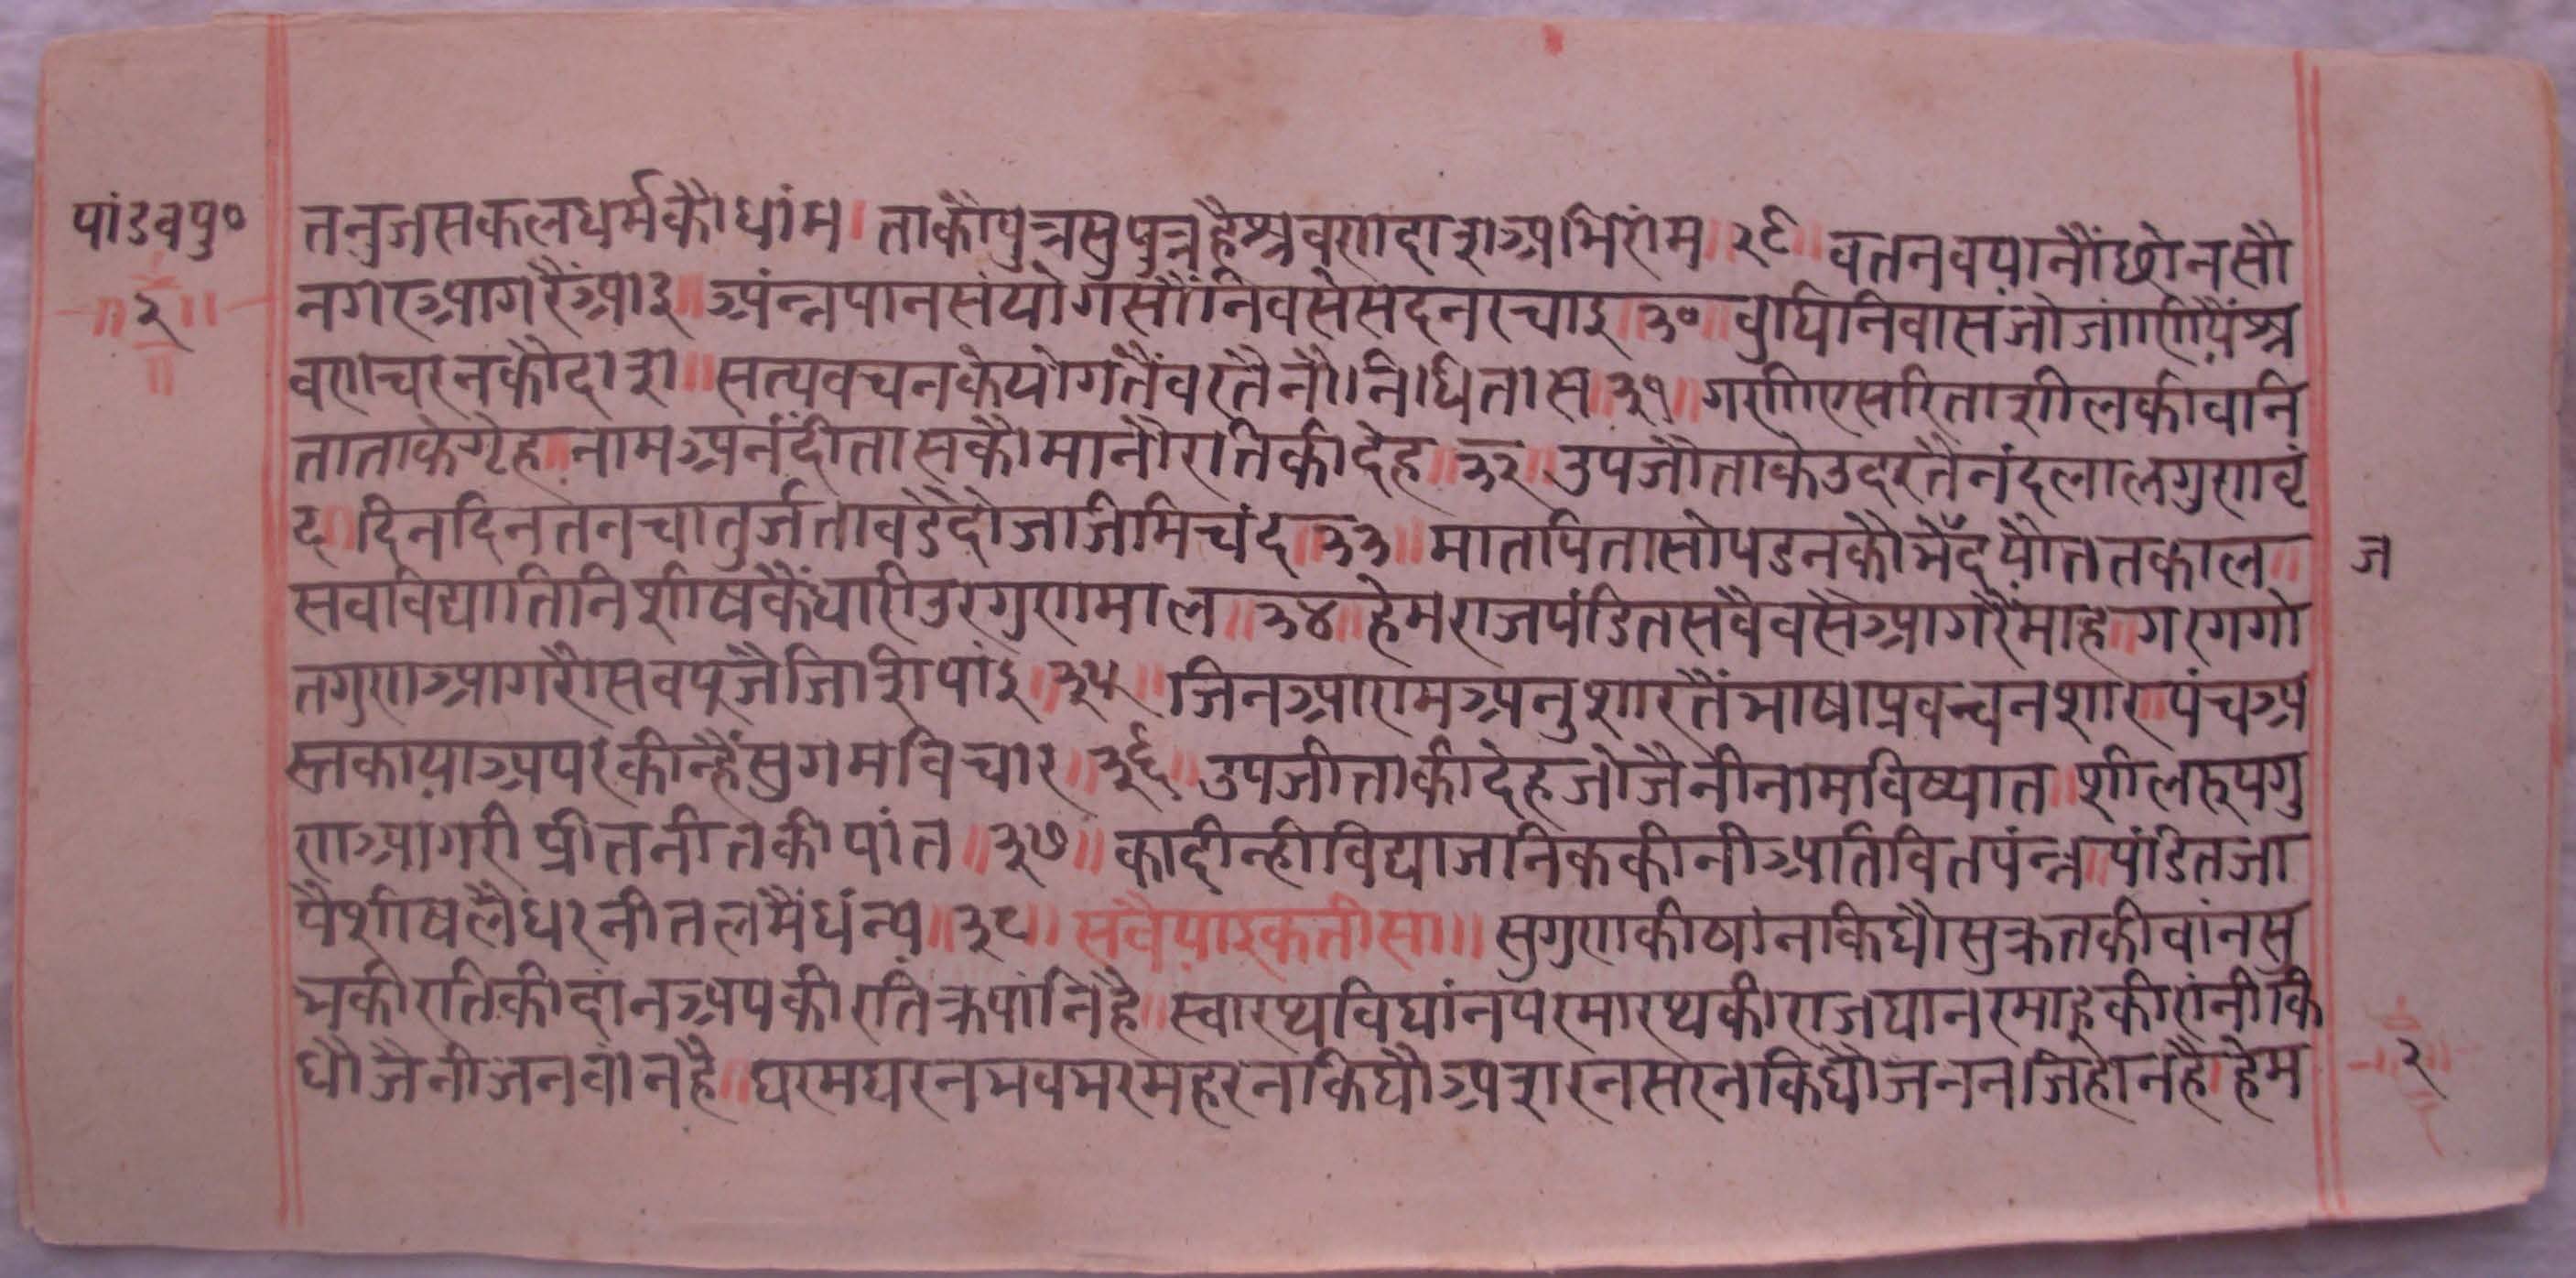 पांडवपु०
२
तनुजसकलधर्मकौधांम। ताकौपुत्रसुपुत्रहैश्रवणदाशअभिरांम॥२९॥ वतनवयानौंछोनसौ
नगरआगरैंआइ॥ अंन्नपानसंयोगसौंनिवसेसदनरचाइ॥३०॥ वुधिनिवासजोजांणियैंश्र
वणचरनकौदाश॥ सत्यवचनकेयोगतैंवरतैनौनिधितास॥३१॥ गणिएसरिताशीलकीवनि
ताताकेगेह॥ नामअनंदीतासकौमानौरतिकीदेह॥३२॥ उपजौताकेउदरतैनंदलालगुणवृं
द॥ दिनदिनतनचातुर्जतावडेदोजजिमिचंद॥३३॥ मातपितासोपडनकौभेंदयौततकाल॥
ज
सवविद्यातिनिशीषकैंधारीउरगुणमाल॥३४॥ हेमराजपंडितसवैवसैआगरैंमाह॥ गरगगो
तगुणआगरौसवपूजैजिशपांइ॥३५॥ जिनआगमअनुशारतैंभाषाप्रवचनशार॥ पंचअ
स्तकायाअपरकीन्हैंसुगमविचार॥३६॥ उपजीताकीदेहजोजैनीनामविष्यात॥ शीलरूपगु
णआगरीप्रीतनीतकीपांत॥३७॥ कादीन्हीविद्याजनिककीनीअतिवितपंन्न॥ पंडितजा
पैशीषलैधरनीतलमैंधंन्य॥३८॥ सवैयाइकतीसा॥ सुगुणकीषानकिधौसुक्रतकीवांनसु
भकीरतिकीदांनअपकीरतिक्रपांनिहै॥ स्वारथविधांनपरमारथकीराजधानरमाहूकीरांनीकि
धौजैनीजनवांनहै॥ धरमधरनभवभरमहरनकिधौअशरनसरनकिधौजननजिहांनहै। हेम
२